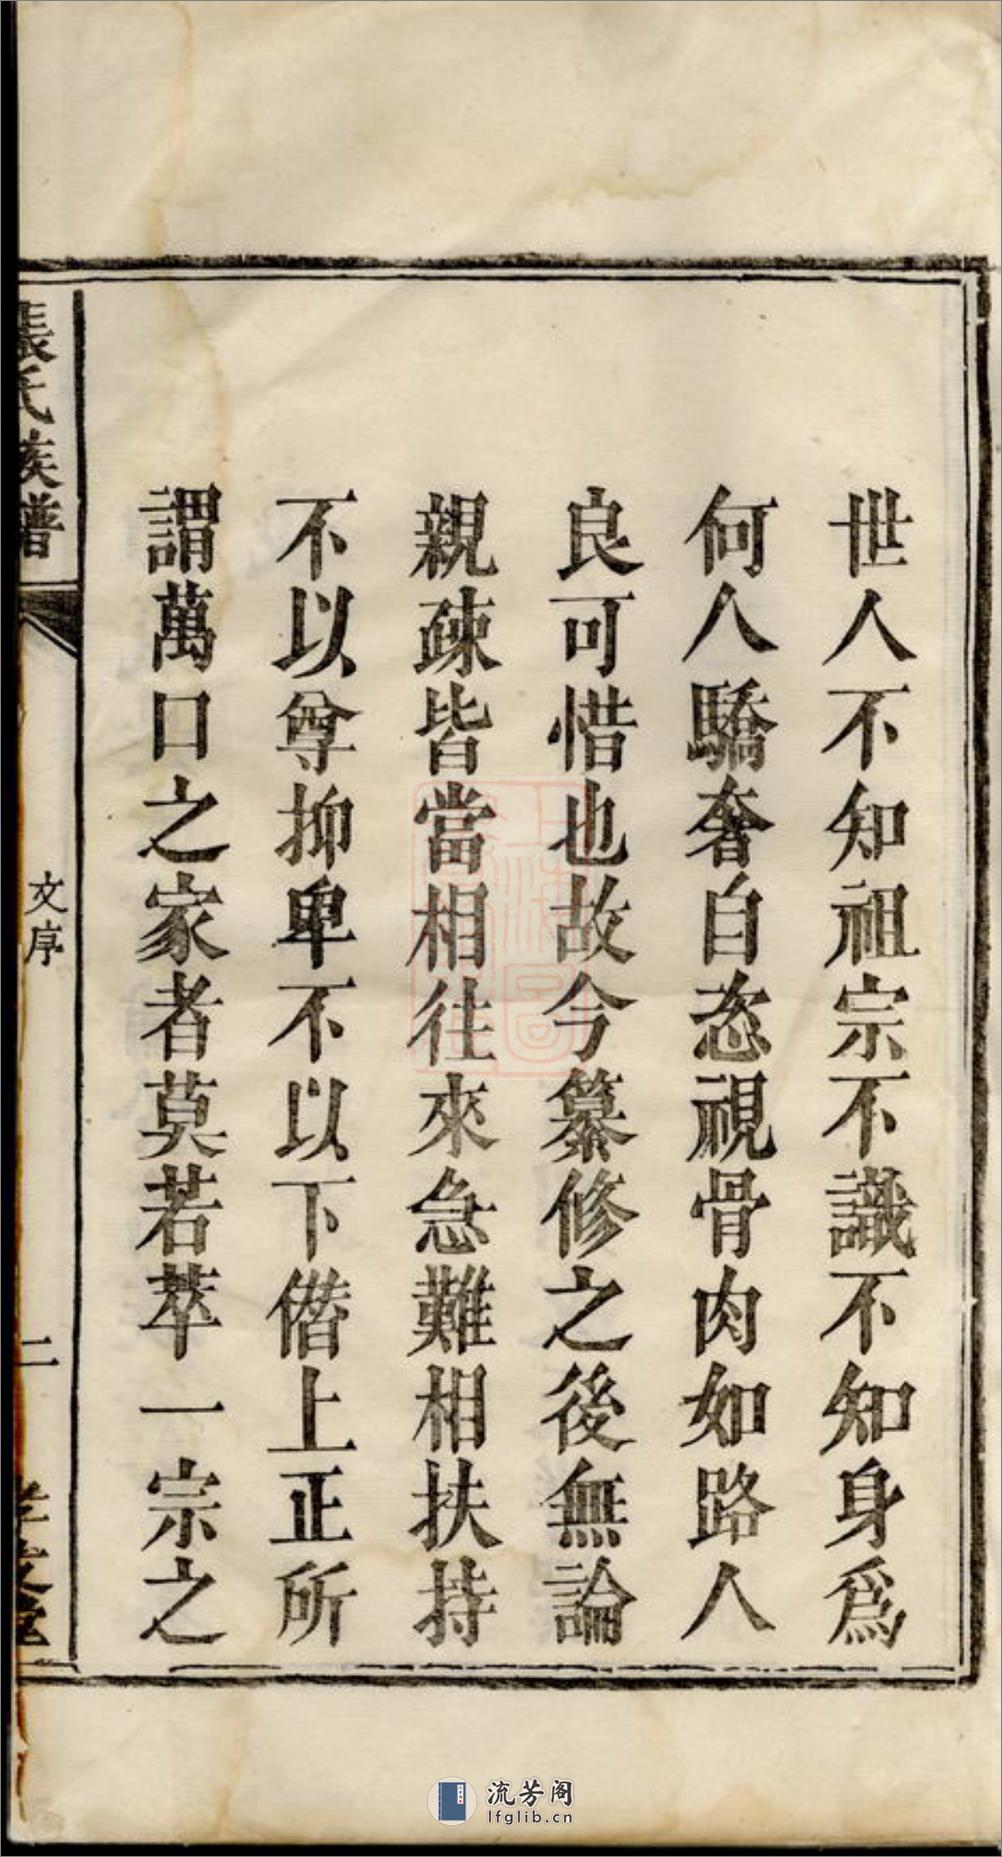 世人不知祖宗不識不知身爲
何人驕奢自恣視骨肉如路人
良可惜也故今纂修之後無論
親疎皆當相往來急難相扶持
不以尊抑卑不以下僭上正所
謂萬口之家者莫若萃一宗之
張氏族譜
文序
二
流芳阁
lfglib.cn